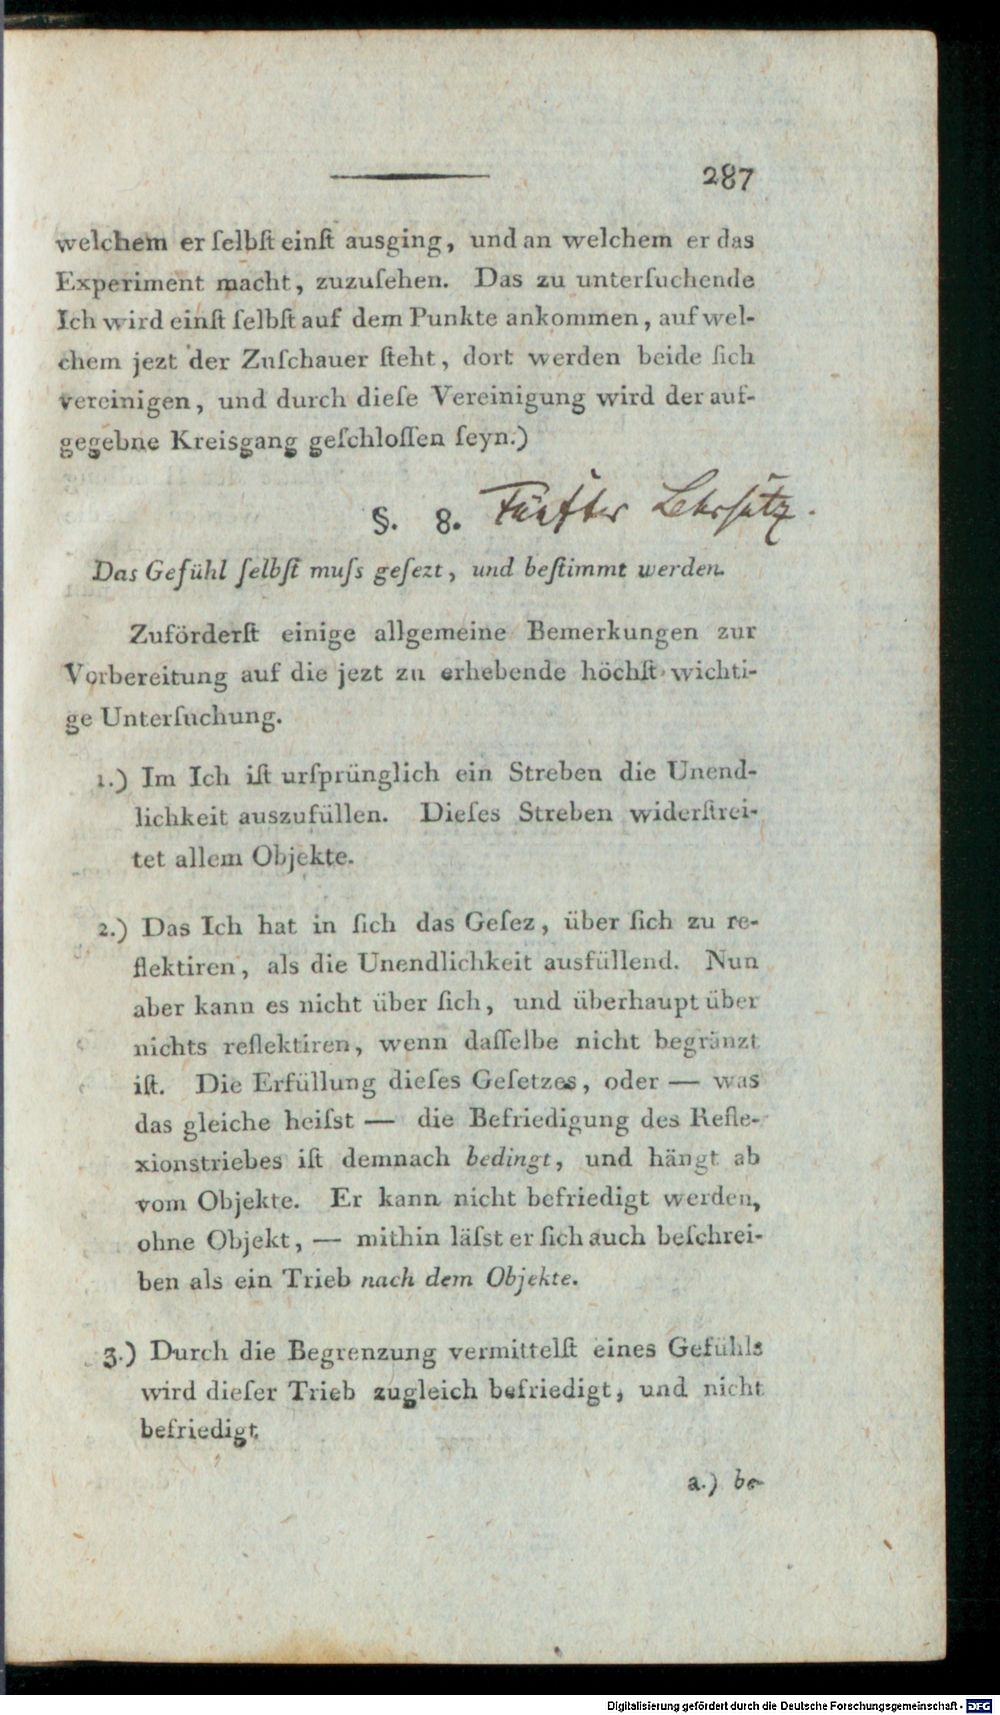 287
welchem er ſelbſt einſt ausging, und an welchem er das
Experiment macht, zuzuſehen. Das zu unterſuchende
Ich wird einſt ſelbſt auf dem Punkte ankommen, auf wel-
chem jezt der Zuſchauer ſteht, dort werden beide ſich
vereinigen, und durch dieſe Vereinigung wird der auf-
gegebne Kreisgang geſchloſſen ſeyn.)
§. 8. Fünfter Lehrſatz.
Das Gefühl ſelbſt muſs geſezt, und beſtimmt werden.
Zuförderſt einige allgemeine Bemerkungen zur
Vorbereitung auf die jezt zu erhebende höchſt wichti-
ge Unterſuchung.
1.) Im Ich iſt urſprünglich ein Streben die Unend-
lichkeit auszufüllen. Dieſes Streben widerſtrei-
tet allem Objekte.
2.) Das Ich hat in ſich das Geſez, über ſich zu re-
flektiren, als die Unendlichkeit ausfüllend. Nun
aber kann es nicht über ſich, und überhaupt über
nichts reflektiren, wenn daſſelbe nicht begränzt
iſt. Die Erfüllung dieſes Geſetzes, oder — was
das gleiche heiſst — die Befriedigung des Refle-
xionstriebes iſt demnach bedingt, und hängt ab
vom Objekte. Er kann nicht befriedigt werden,
ohne Objekt, — mithin läſst er ſich auch beſchrei-
ben als ein Trieb nach dem Objekte.
3.) Durch die Begrenzung vermittelſt eines Gefühls
wird dieſer Trieb zugleich befriedigt, und nicht
befriedigt.
a.) be-
Digitalisierung gefördert durch die Deutsche Forschungsgemeinschaft - DFG